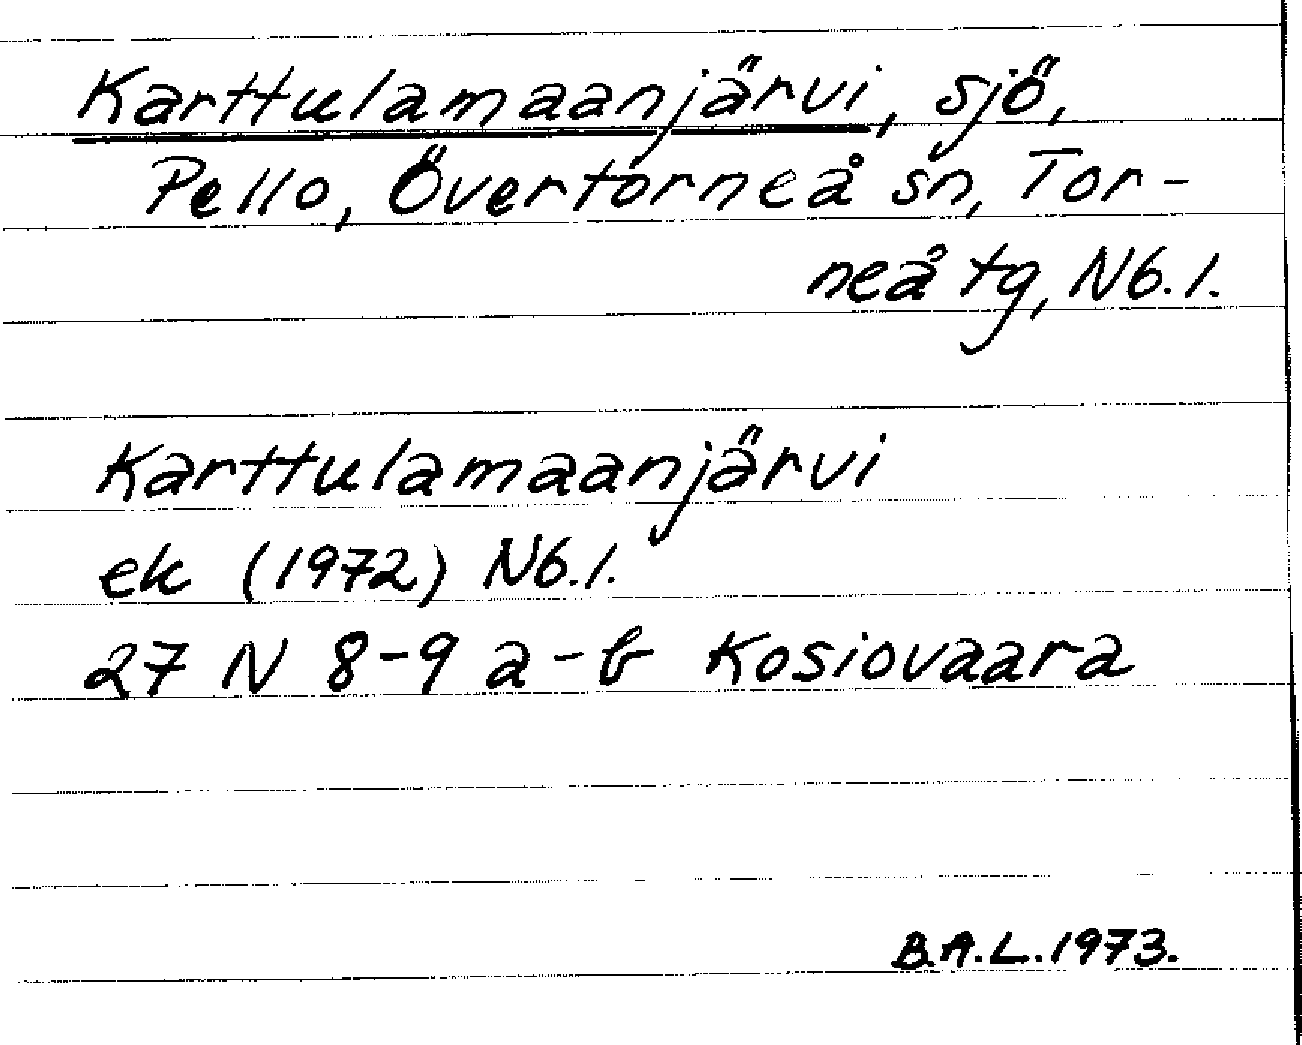 Karttulamaanjärvi, sjö,
Pello, Övertorneå sn, Tor-
neå tg, Nb. l.
Karttulamaanjärvi
ek (1972) Nb. l.
27 N 8-9 a-b Kosiovaara
B.A.L. 1973.